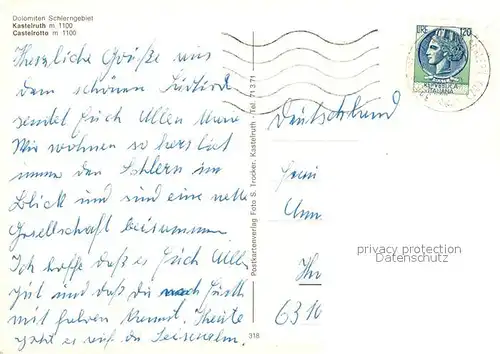 Dolomiten Schlerngebiet
Kastelruth m 1100
Castelrotto m 1100
Herzliche Grüße aus
dem schönen Südtirol
sendet Euch Allen
Wir wohnen so herrlich
immer den Schlern im
Blick und sind eine nette
Gesellschaft beisammen
Ich hoffe daß es Euch Allen
gut und daß du
mit
geht es auf die Seiseralm.
Postkartenverlag Foto S. Trocker, Kastelruth - Tel. 71 3 71
318
LIRE 120
REPVBBLICA
ITALIANA
Deutschland
Frau
6310
privacy protection
Datenschutz